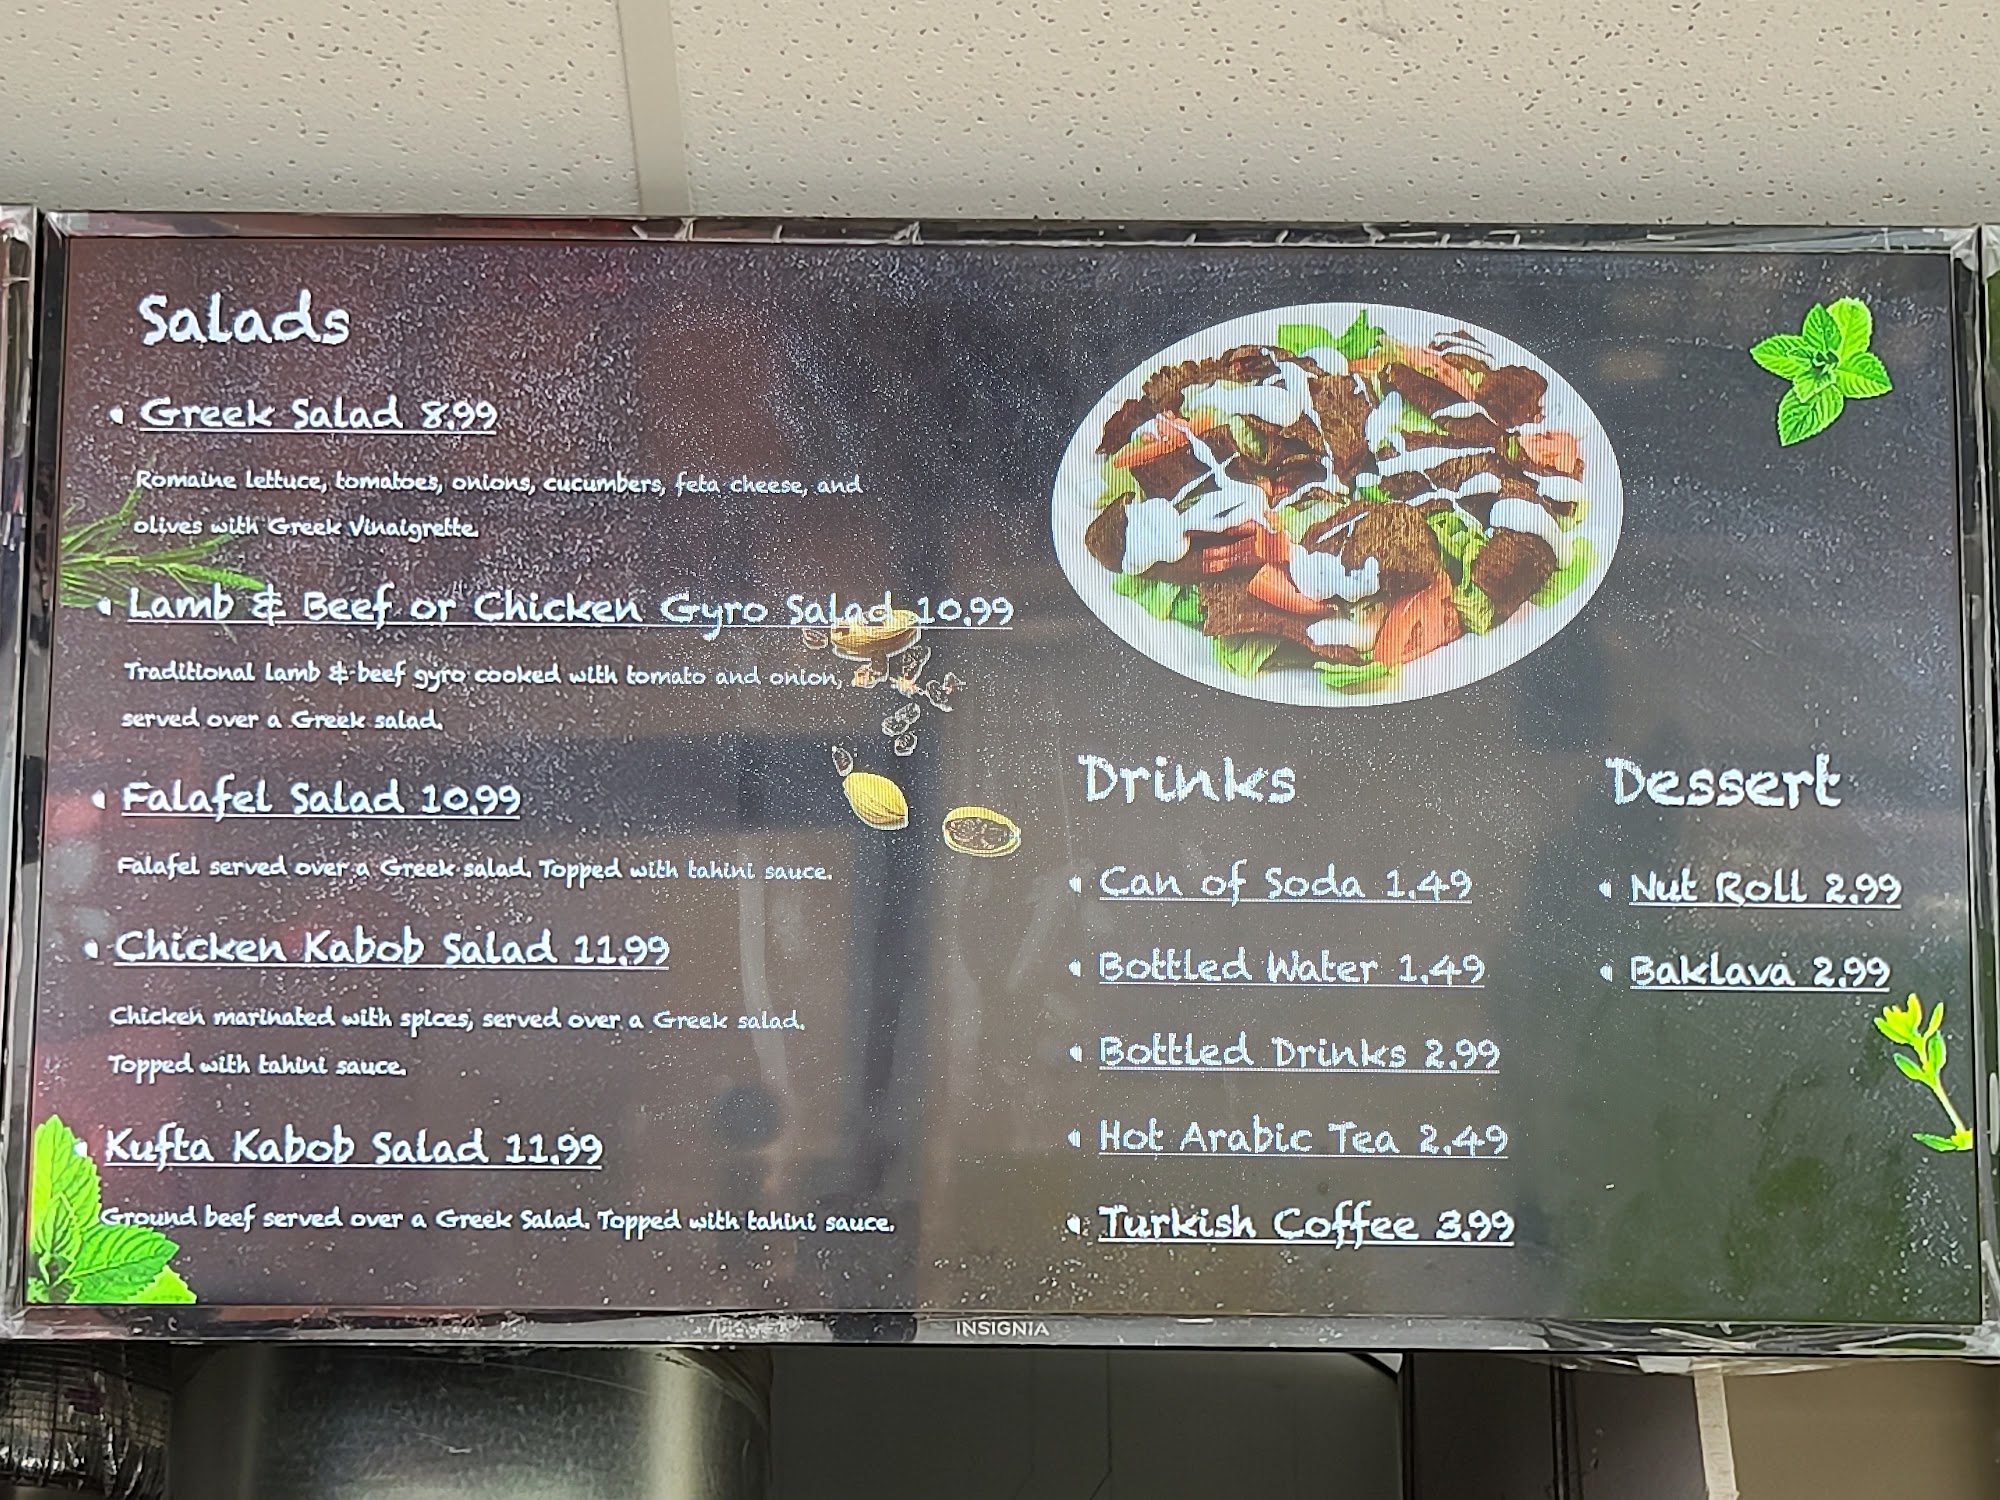 Salads
Greek Salad 8.99
Romaine lettuce, tomatoes, onions, cucumbers, feta cheese, and
olives with Greek Vinaigrette.
Lamb & Beef or Chicken Gyro Salad 10.99
Traditional lamb & beef gyro cooked with tomato and onion,
served over a Greek salad.
Falafel Salad 10.99
Falafel served over a Greek salad. Topped with tahini sauce.
Chicken Kabob Salad 11.99
Chicken marinated with spices, served over a Greek salad.
Topped with tahini sauce.
Kufta Kabob Salad 11.99
Ground beef served over a Greek Salad. Topped with tahini sauce.
Drinks
Can of Soda 1.49
Bottled Water 1.49
Bottled Drinks 2.99
Hot Arabic Tea 2.49
Turkish Coffee 3.99
Dessert
Nut Roll 2.99
Baklava 2.99
INSIGNIA